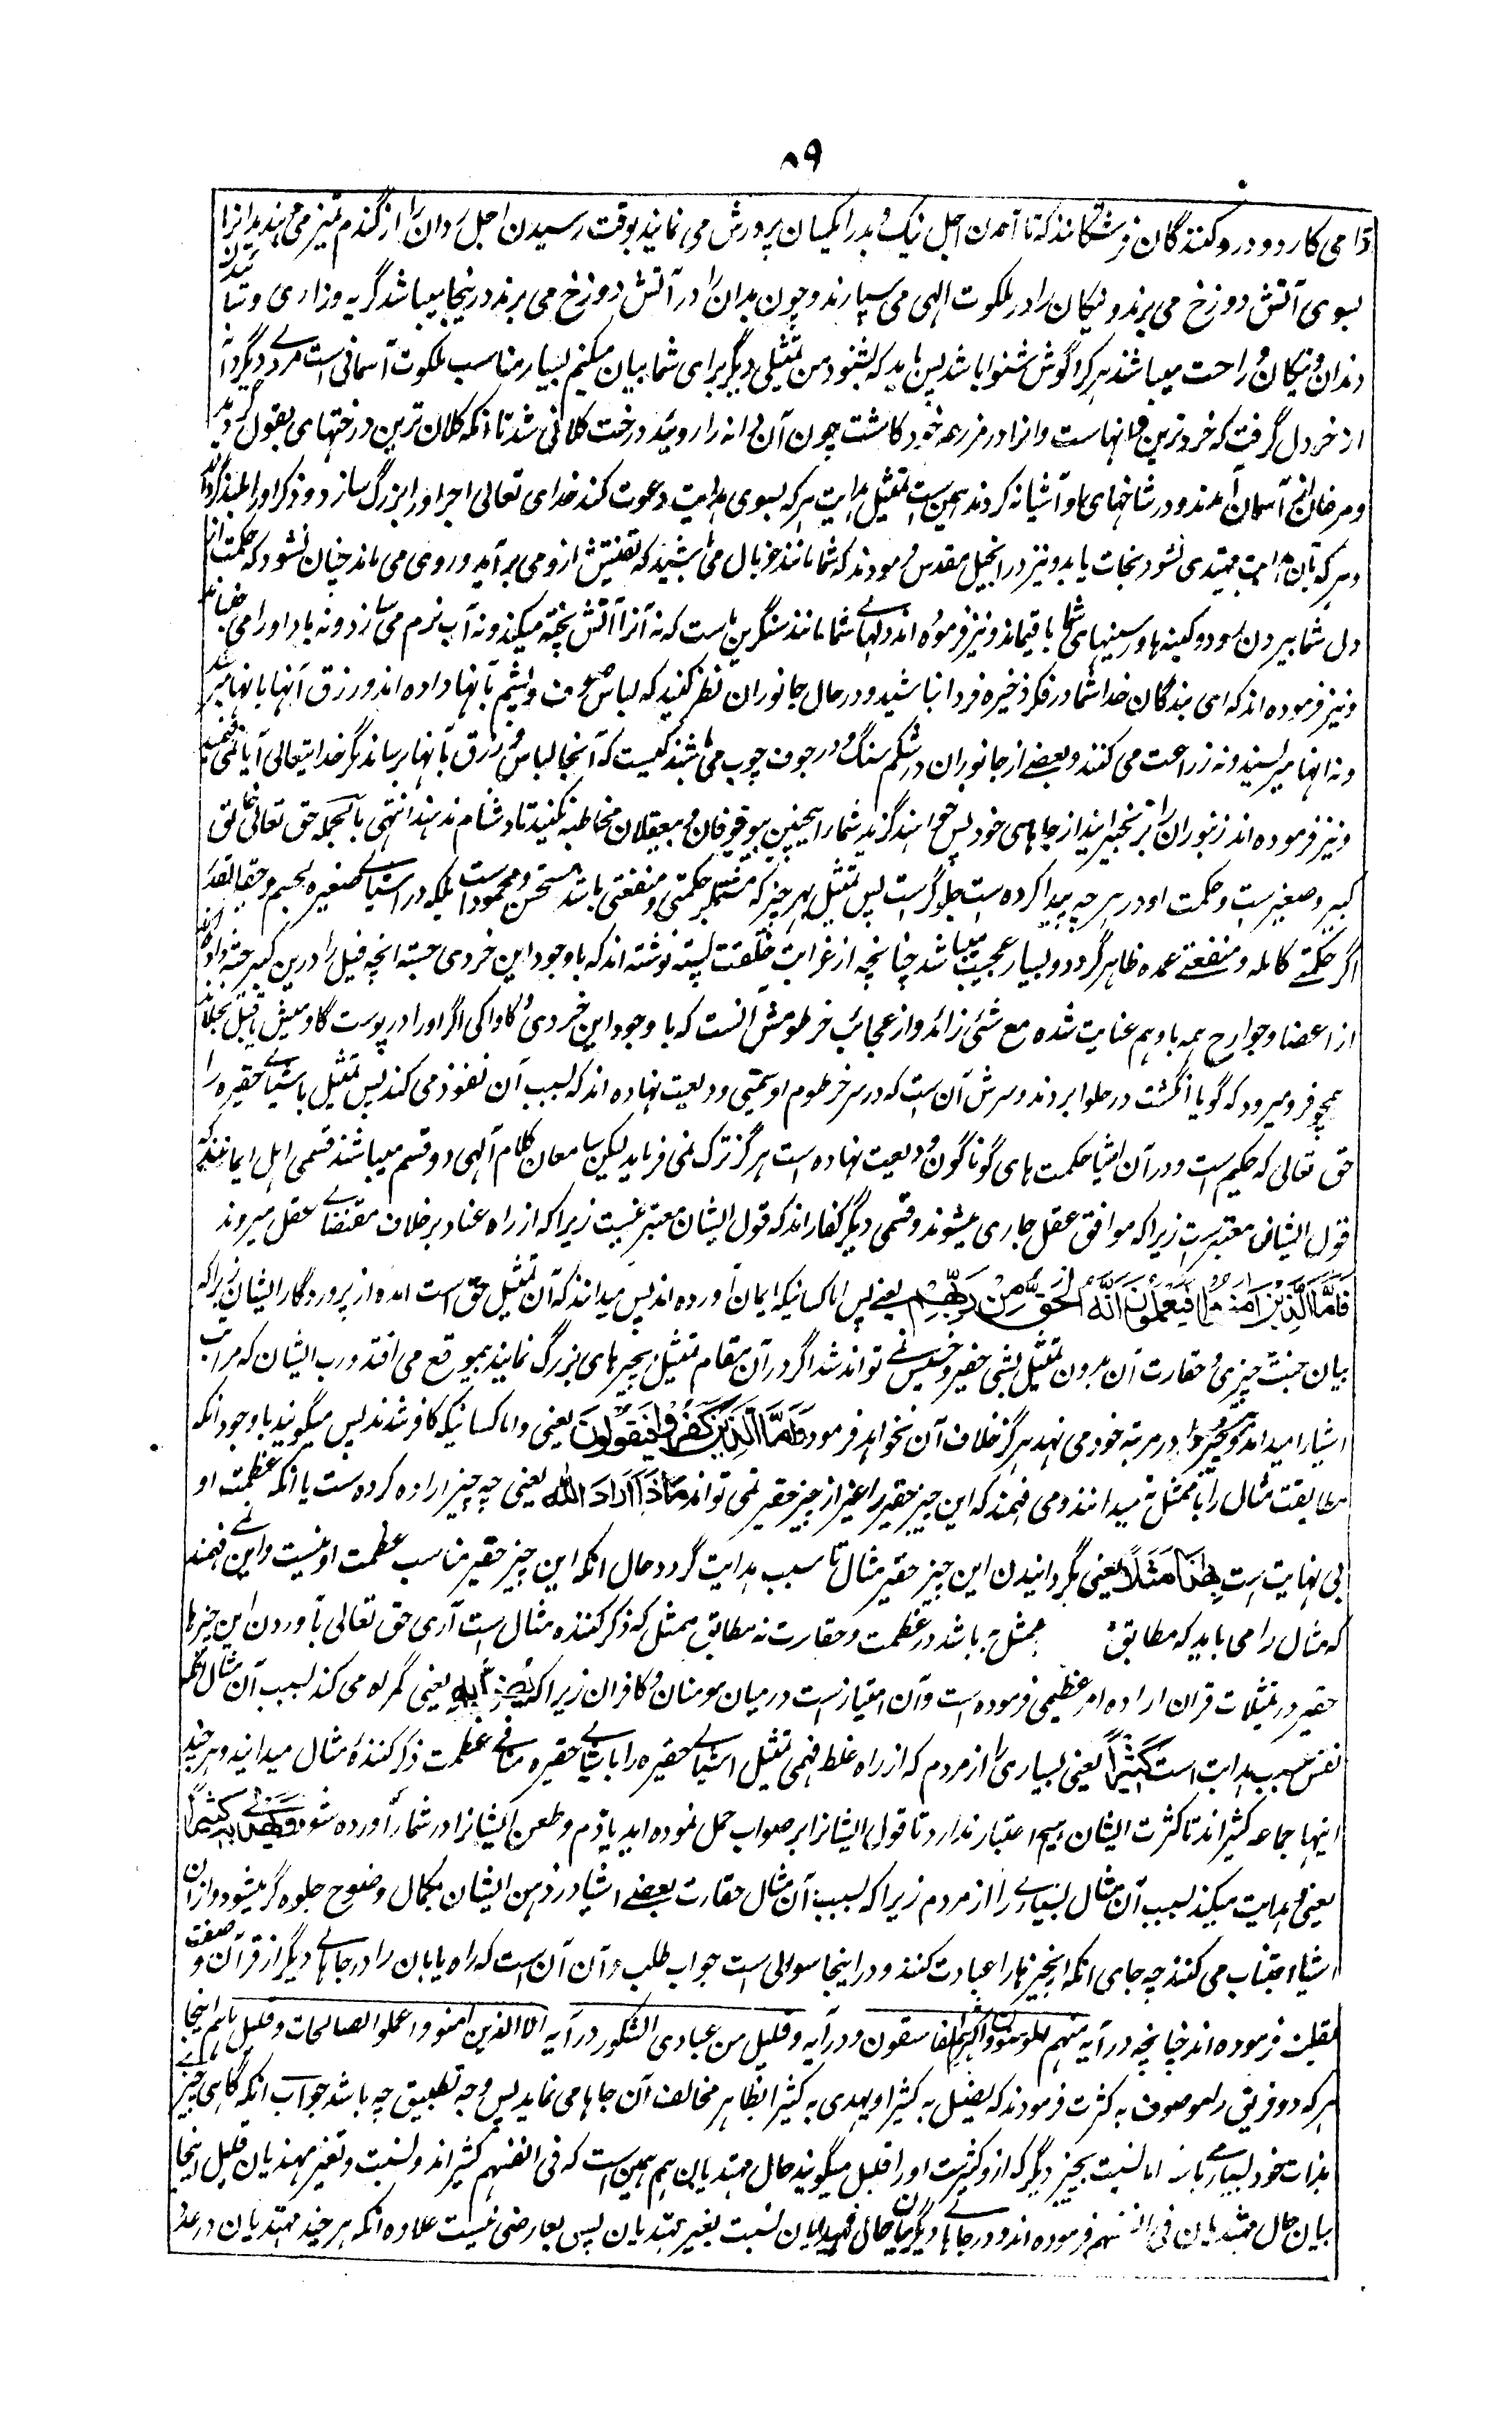 ۸۹
را می کارد و درو کنندگان فرشتگانند که تا آمدن اجل نیک و بد را یکسان پرورش می نمایند بوقت رسیدن اجل روان را از گندم تمیز می دهند بدانرا
بسوی آتش دوزخ می برند و نیکان را در ملکوت الهی می سپارند و چون بدان را در آتش دوزخ می برند در آنجا میباشد گریه و زاری و
دندان و نیکان را راحت میباشد هر کرا گوش شنوا باشد پس باید که بشنود من تمثیلی دیگر برای شما بیان میکنم بسیار مناسب ملکوت آسمانی است مردے دیگر دانه
از خردل گرفت که خردترین دانهاست و انرا در مزرعه خود کاشت چون آن دانه را روئید درخت کلانی شد تا آنکه کلان ترین درختهای بقول گردید
و مرغان از آسمان آمدند و در شاخهای او آشیانه کردند همین ست تمثیل هدایت هر که بسوی هدایت دعوت کند خدای تعالی اجر او را بزرگ سازد و ذکر او را بلند گرداند
و هر که بآن هدایت مهتدی شود نجات یابد و نیز در انجیل مقدس فرمودند که شما مانند غربال می باشید که تفتیش ازو می برآید و روی می ماند چنان نشود که حکمت از
دل شما بیرون رود و کینه ها در سینهای شما باقیماند و نیز فرموده اند دلهاے شما مانند سنگریزه است که نه آنرا آتش پخته میکند و نه آب نرم می سازد و نه باد او را می جنباند
و نیز فرموده اند که ای بندگان خدا شما در فکر ذخیره فردا نباشید و در حال جانوران نظر کنید که لباس صوف و پشم بآنها داده اند و رزق آنها بانها میرسد
و نه انها میریسند و نه زراعت می کنند و بعضے از جانوران در شکم سنگ و در جوف چوب می باشند کیست که آنجا لباس و رزق بآنها برساند مگر خدایتعالی آیا نمی فهمید
و نیز فرموده اند زنبوران را بر نخیزانید از جاهای خود پس خواهند گزید شما را همچنین بیوقوفان و بیعقلان مخاطبه نکنید تا دشنام ندهند انتهی بالجمله حق تعالی خالق
کبیر و صغیر ست و حکمت او در هر چه پیدا کرده ست جلوگر ست پس تمثیل بهر چیز که مشتمل بر حکمتی و منفعتی باشد مستحسن و محمود است بلکه در اشیاے صغیره لجسم و حقیر القدر
اگر حکمتے کامله و منفعتے عمده ظاهر گردد و بسیار عجیب میباشد چنانچه از غرایب خلقت پشه نوشته اند که باوجود این خردی جسته انچه فیل را درین کبر جثه داده اند
از اعضا و جوارح همه باو هم عنایت شده مع شئی زائد و از عجائب خرطومش آنست که با وجود این خردی و کاواکی اگر او را در پوست گاومیش یا فیل بخلاند
همچو فرو میرود که گویا انگشت در حلوا بردند و سرش آن ست که در سر خرطوم او سمیتی ودیعت نهاده اند که بسبب آن نفوذ می کند پس تمثیل باشیاے حقیره را
حق تعالی که حکیم است و در آن اشیا حکمت های گوناگون ودیعت نهاده است هرگز ترک نمی فرماید لیکن سامعان کلام آلهی دو قسم میباشند قسمی اهل ایمانند که
قول ایشان معتبر ست زیرا که موافق عقل جاری میشوند و قسمی دیگر کفار اند که قول ایشان معتبر نیست زیرا که از راه عناد بر خلاف مقتضاے عقل میروند
فَاَمَّا الَّذِیْنَ اٰمَنُوْا فَیَعْلَمُوْنَ اَنَّهُ الْحَقُّ مِنْ رَبِّهِمْ یعنے پس اما کسانیکه ایمان آورده اند پس میدانند که آن تمثیل حق است امده از پروردگار ایشان زیرا که
بیان خبث چیزی و حقارت آن بدون تمثیل بشی حقیر و خسیس نمے تواند شد اگر در آن مقام تمثیل بچیزهای بزرگ نمایند بیموقع می افتد و رب ایشان که مراتب
اشیا را میداند و هر چیز را در مرتبه خود می نهد هرگز خلاف آن نخواهد فرمود وَاَمَّا الَّذِیْنَ کَفَرُوْا فَیَقُوْلُوْنَ یعنی و اما کسانیکه کافر شدند پس میگویند باوجود آنکه
مطابقت مثال را با ممثل به میدانند و می فهمند که این چیز حقیر را غیر از چیز حقیر نمی تواند مَاذَا اَرَادَ اللهُ یعنی چه چیز اراده کرده ست یا آنکه عظمت او
بی نهایت ست بِهٰذَا مَثَلًا یعنی بگردانیدن این چیز حقیر مثال تا سبب هدایت گردد حال انکه این چیز حقیر مناسب عظمت او نیست و این نمے فهمند
که مثال را می باید که مطابق ممثل به باشد در عظمت و حقارت نه مطابق ممثل که ذکر کننده مثال است آری حق تعالی بآوردن این چیزها
حقیر در تمثیلات قران اراده امر عظیمی فرموده است و آن امتیاز است درمیان مومنان و کافران زیرا که یُضِلُّ بِهٖ یعنی گمراه می کند بسبب آن مثال که
نفس سبب هدایت است کَثِیْرًا یعنی بسیاری را از مردم که از راه غلط فهمی تمثیل اشیاے حقیره را باشیاے حقیره منافی عظمت ذکر کنندهٔ مثال میدانند و هر چند
اینها جماعه کثیر اند تا کثرت ایشان هیچ اعتبار ندارد تا قول ایشانرا بر صواب حمل نموده اید یا ذم و طعن ایشانرا در شمار آورده شود وَیَهْدِیْ بِهٖ کَثِیْرًا
یعنی و هدایت میکند بسبب آن مثال بسیارے را از مردم زیرا که بسبب آن مثال حقارت بعضے اشیا در ذهن ایشان بکمال وضوح جلوه گر میشود و ازان
اشیا اجتناب می کنند چه جای انکه آنچیزها را عبادت کنند و در اینجا سوالی است جواب طلب و آن آن است که راه یابان را در جاهاے دیگر از قرآن و صفت
بقلت فرموده اند چنانچه در آیه منهم المومنون و اکثرهم الفاسقون و در آیه و قلیل من عبادی الشکور در آیه الا الذین امنو و اعملو الصالحات و قلیل ماهم اینجا
هر که دو فریق را موصوف به کثرت فرمودند که یضل به کثیرا و یهدی به کثیرا بظاهر مخالف آن جاها می نماید پس وجه تطبیق چه باشد جواب انکه گاهی چیزے
بذات خود بسیارے باشد اما نسبت بچیز دیگر که ازو کثیر ست او را قلیل میگویند حال مهتدیان هم همین ست که فی انفسهم کثیر اند و نسبت و بغیر مهتدیان قلیل اینجا
بیان حال مهتدیان فی انفسهم فرموده اند و در جاهاے دیگر بیان حال مهتدیان نسبت بغیر مهتدیان پس تعارضی نیست علاوه انکه هر چند مهتدیان در عدد